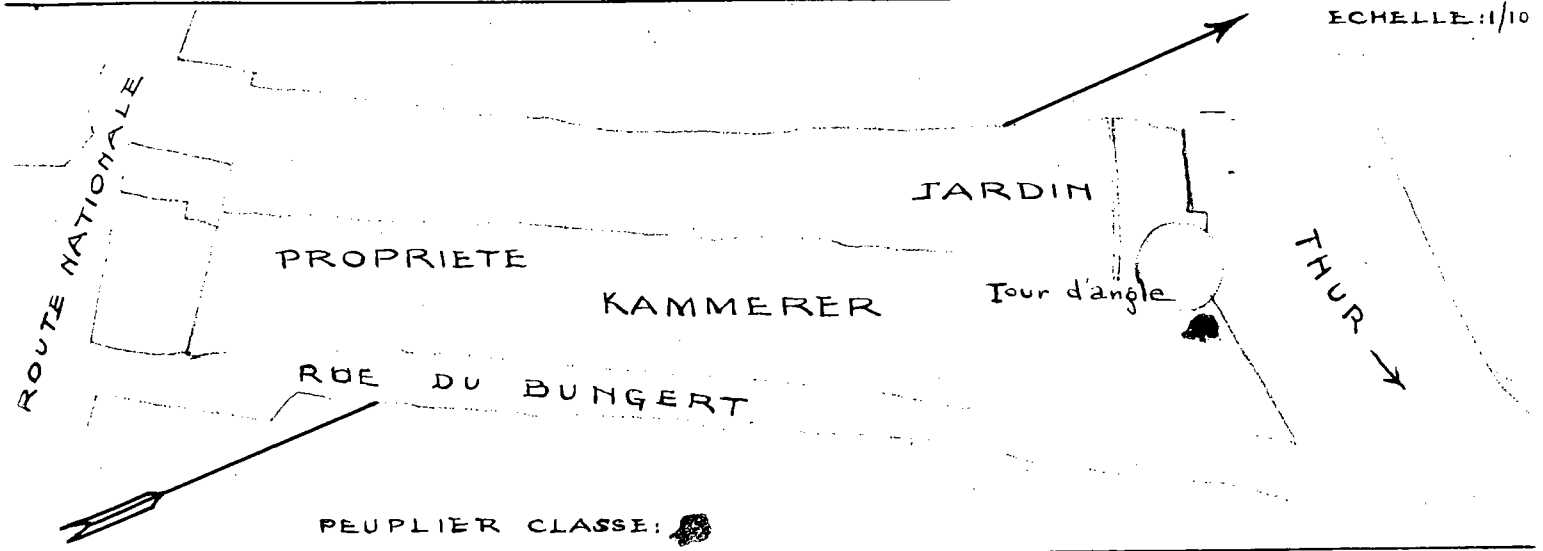 ECHELLE:1/10
ROUTE NATIONALE
JARDIN
PROPRIETE
KAMMERER
Tour d'angle
THUR
RUE DU BUNGERT
PEUPLIER CLASSE: